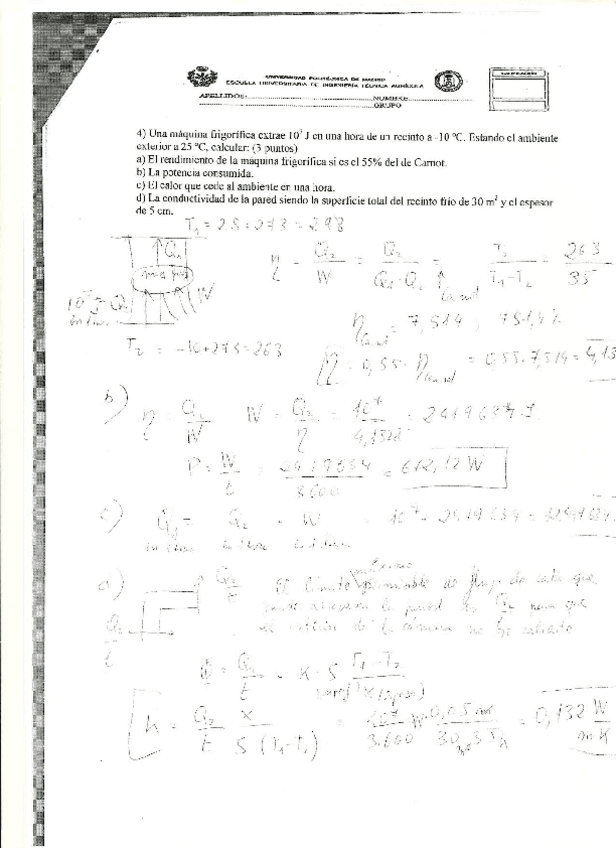 UNIVERSIDAD POLITÉCNICA DE MADRID
ESCUELA UNIVERSITARIA DE INGENIERÍA TÉCNICA AGRÍCOLA
APELLIDOS NOMBRE
GRUPO
4) Una máquina frigorífica extrae 10⁷ J en una hora de un recinto a -10 ºC. Estando el ambiente
exterior a 25 ºC, calcular: (3 puntos)
a) El rendimiento de la máquina frigorífica si es el 55% del de Carnot.
b) La potencia consumida.
c) El calor que cede al ambiente en una hora.
d) La conductividad de la pared siendo la superficie total del recinto frío de 30 m² y el espesor
de 5 cm.
T₁ = 25+273 = 298
Q₁
η = Q₂/W = Q₂/(Q₁-Q₂) = T₂/(T₁-T₂) = 263/35
Carnot
W
η = 7,514 ; 751,4%
T₂ = -10+273=263
η = 0,55 · η = 0,55·7,514 = 4,13
b) η = Q₂/W W = Q₂/η = 10⁷/4,1328 = 2419634 J
P = W/t = 2419634/3600 = 672,12 W
c) Q₁ = Q₂ + W = 10⁷ + 2419634 =
Q₂/t
El límite de flujo de calor que
la pared es Q₂ para que
el de la cámara no se caliente
Q₂/t
Φ = Q₂/t = K · S (T₁-T₂)
k = Q₂/t x/(S (T₁-T₂)) = 10⁷/3.600 W 0,05 m/(30 m² 35 K) = 0,132 W/mK